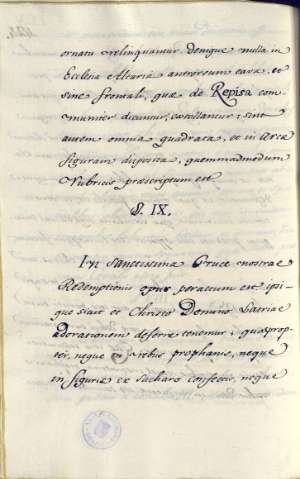 ornatu relinquantur denique nulla in
Ecclesia Altaria antrorsum cava, et
sine frontali, quæ de Repisa com
muniter dicuntur, castillantur: sint
autem omnia quadrata, et in Arcæ
figuram disposita, quemmadmodum
Rubricis præscriptum est
§. IX.
In Sanctissima Cruce nostrae
Redemptionis opus peractum est ipsi
que sicut et Christo Domino Latriae
adorationem deferre tenemur; quaprop
ter, neque in rebus prophanis, neque
in figuris ex sacharo confectis, neque